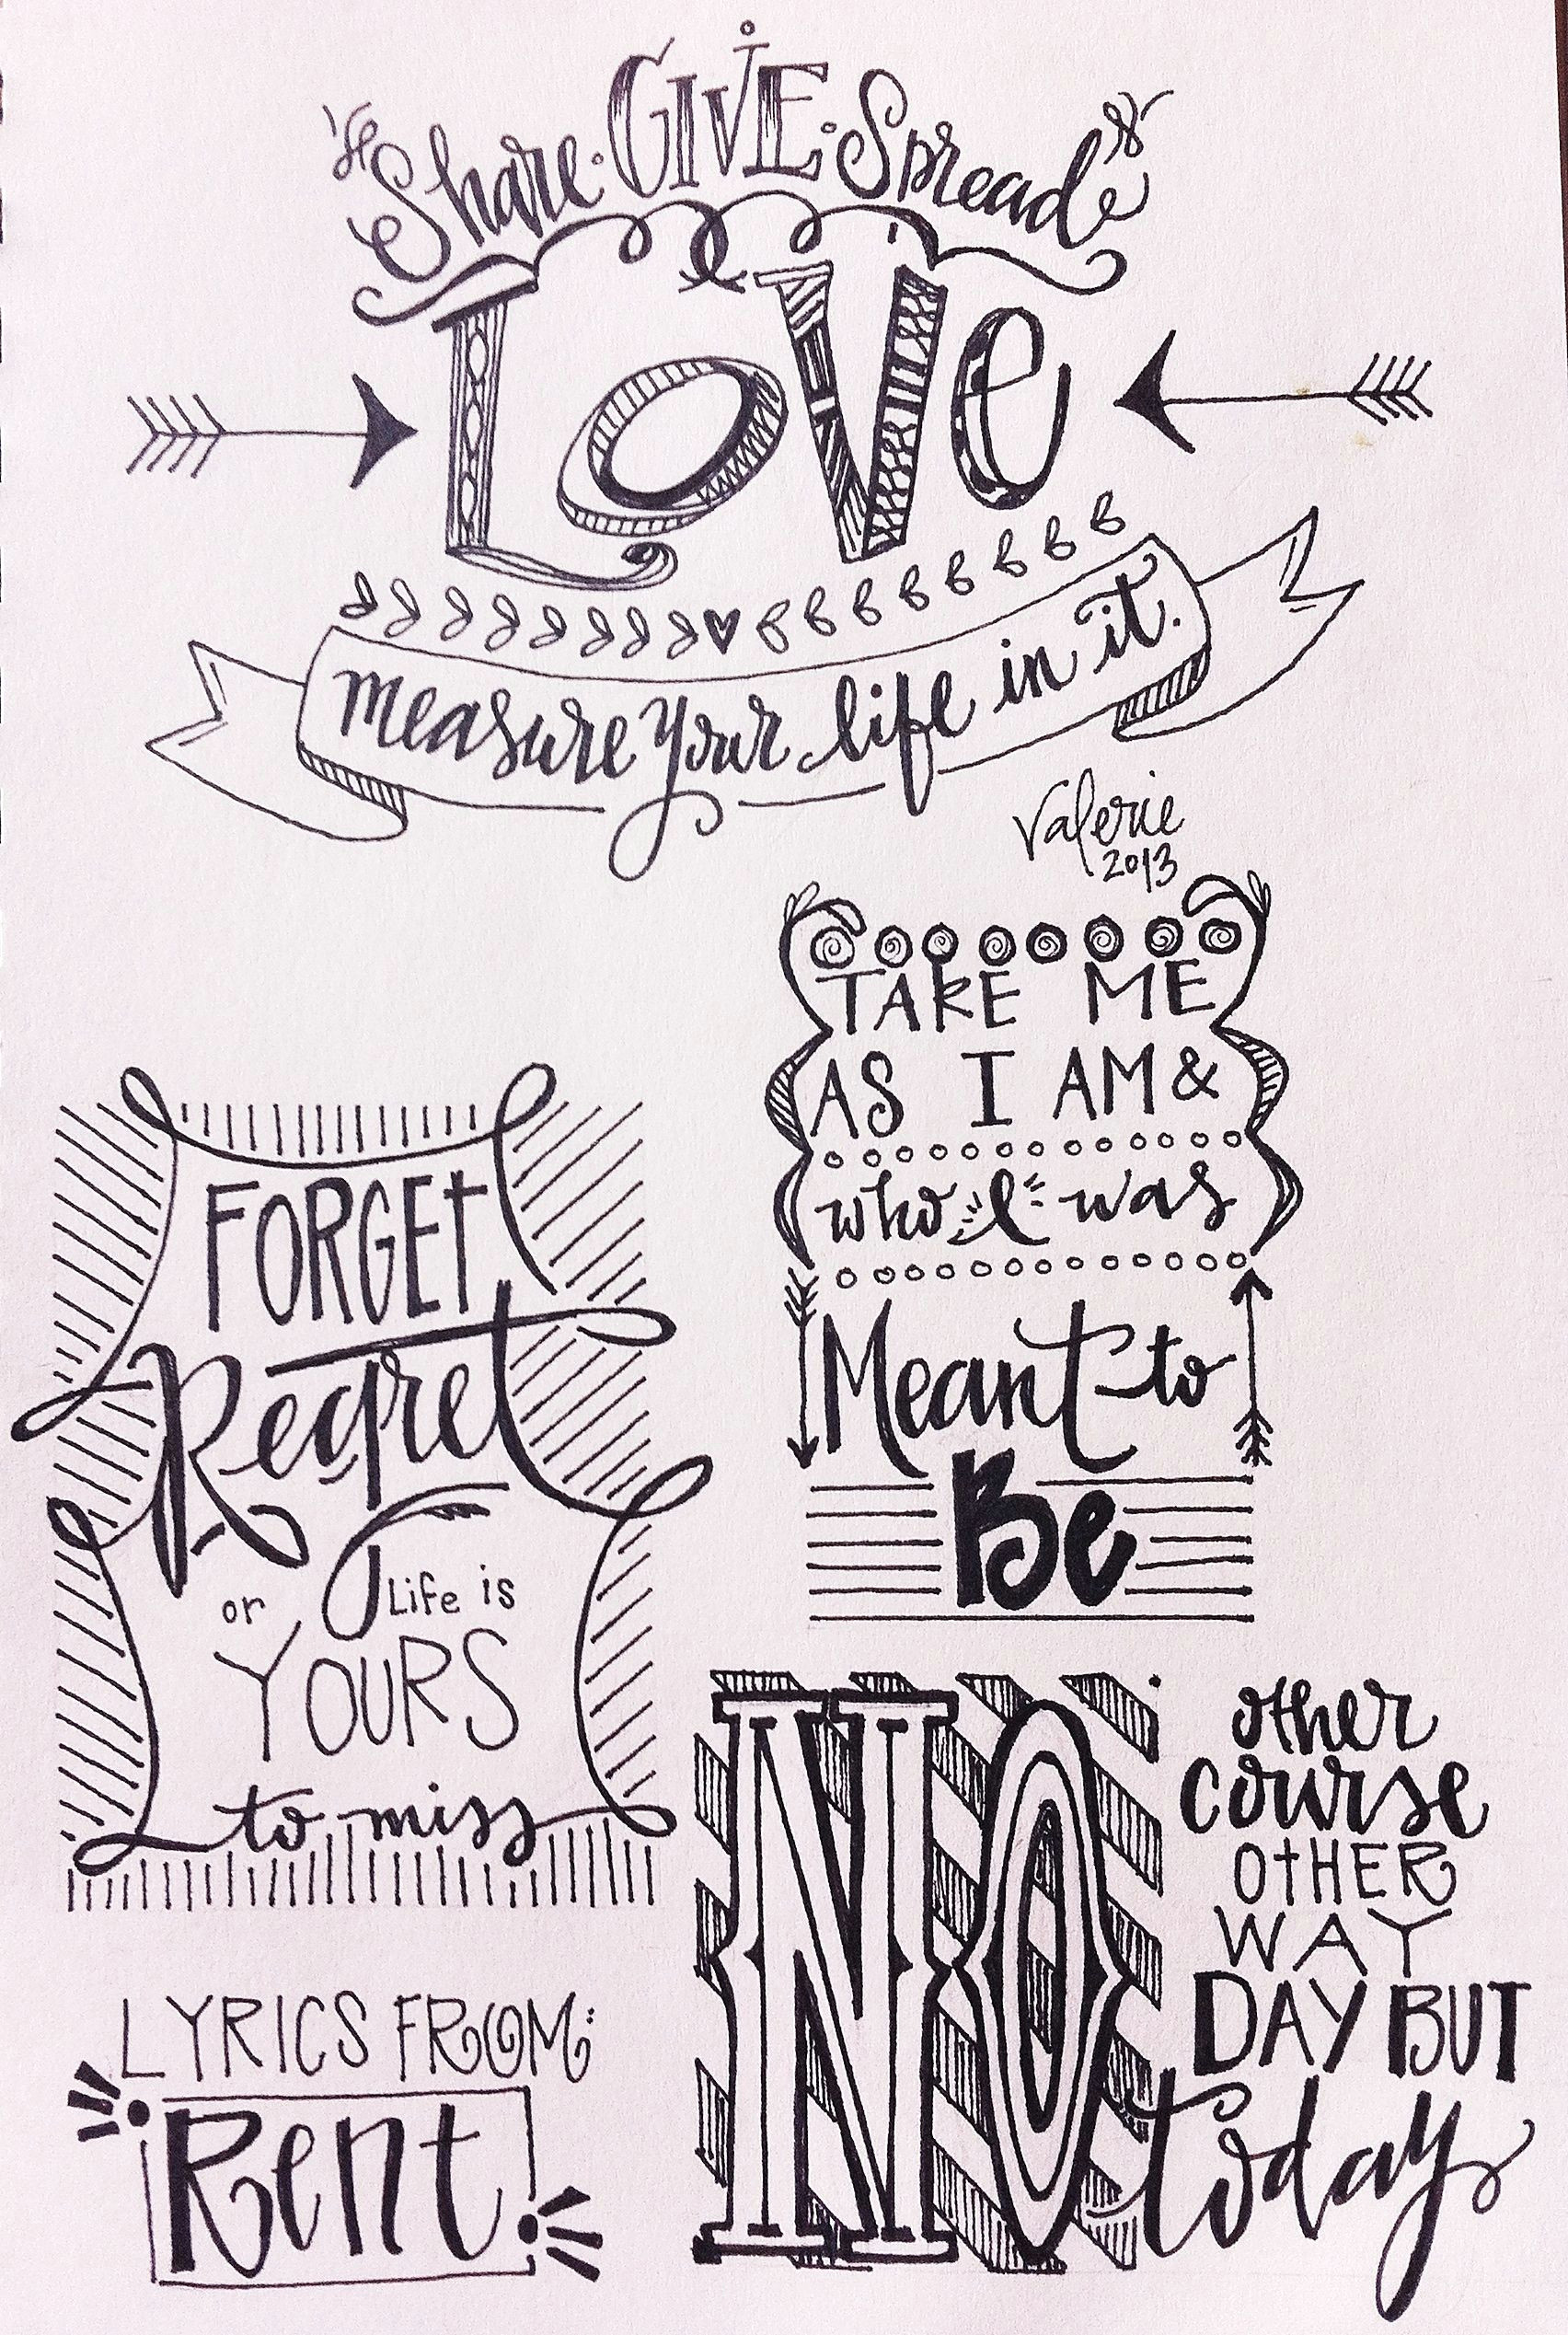 Share · GIVE · Spread
LoVe
measure your life in it.
Valerie
2013
TAKE ME
AS I AM &
who I was
Meant to
Be
FORGEt
Regret
or Life is
YOURS
to miss
NO
other
course
OtHER
WAY
DAY BUT
today
LYRICS FROM:
Rent